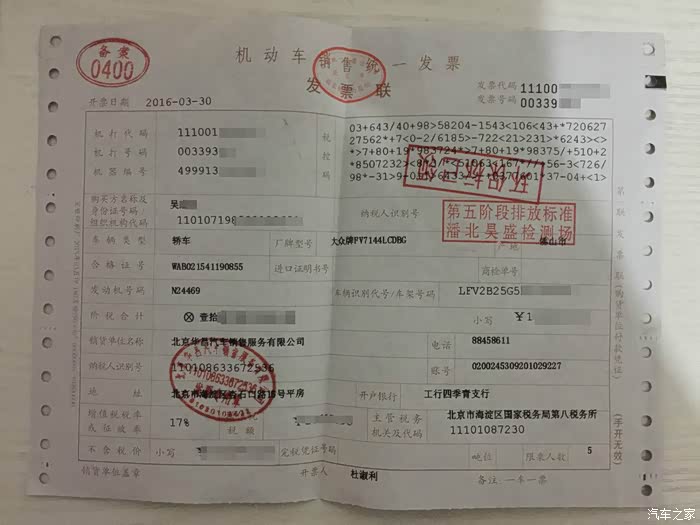 备案
0400
机动车销售统一发票
发票联
开票日期 2016-03-30
发票代码 11100
发票号码 00339
机打代码 111001
机打号码 003393
机器编号 499913
税控码
03+643/40+98>58204-1543<106<43+*720627
27562*+7<0-2/6185>-722<21>231>*6243<>
购买方名称及
身份证号码/
组织机构代码
吴
110107198
纳税人识别号
第五阶段排放标准
潘北昊盛检测场
车辆类型 轿车 厂牌型号 大众牌FV7144LCDBG 产地 佛山市
合格证号 WAB021541190855 进口证明书号 商检单号
发动机号码 N24469 车辆识别代号/车架号码 LFV2B25G5
价税合计 ⊗壹拾 小写 ¥1
销货单位名称 北京华昌汽车销售服务有限公司 电话 88458611
纳税人识别号 110108633672536 账号 0200245309201029227
地址 北京市海淀区杏石口路18号平房 开户银行 工行四季青支行
增值税税率
或征收率
17% 税额
主管税务
机关及代码
北京市海淀区国家税务局第八税务所
11101087230
不含税价 小写 完税凭证号码 吨位 限乘人数 5
销货单位盖章 开票人 杜淑利 备注:一车一票
第二联 发票联(购货单位付款凭证)
(手开无效)
110108633672536
汽车之家